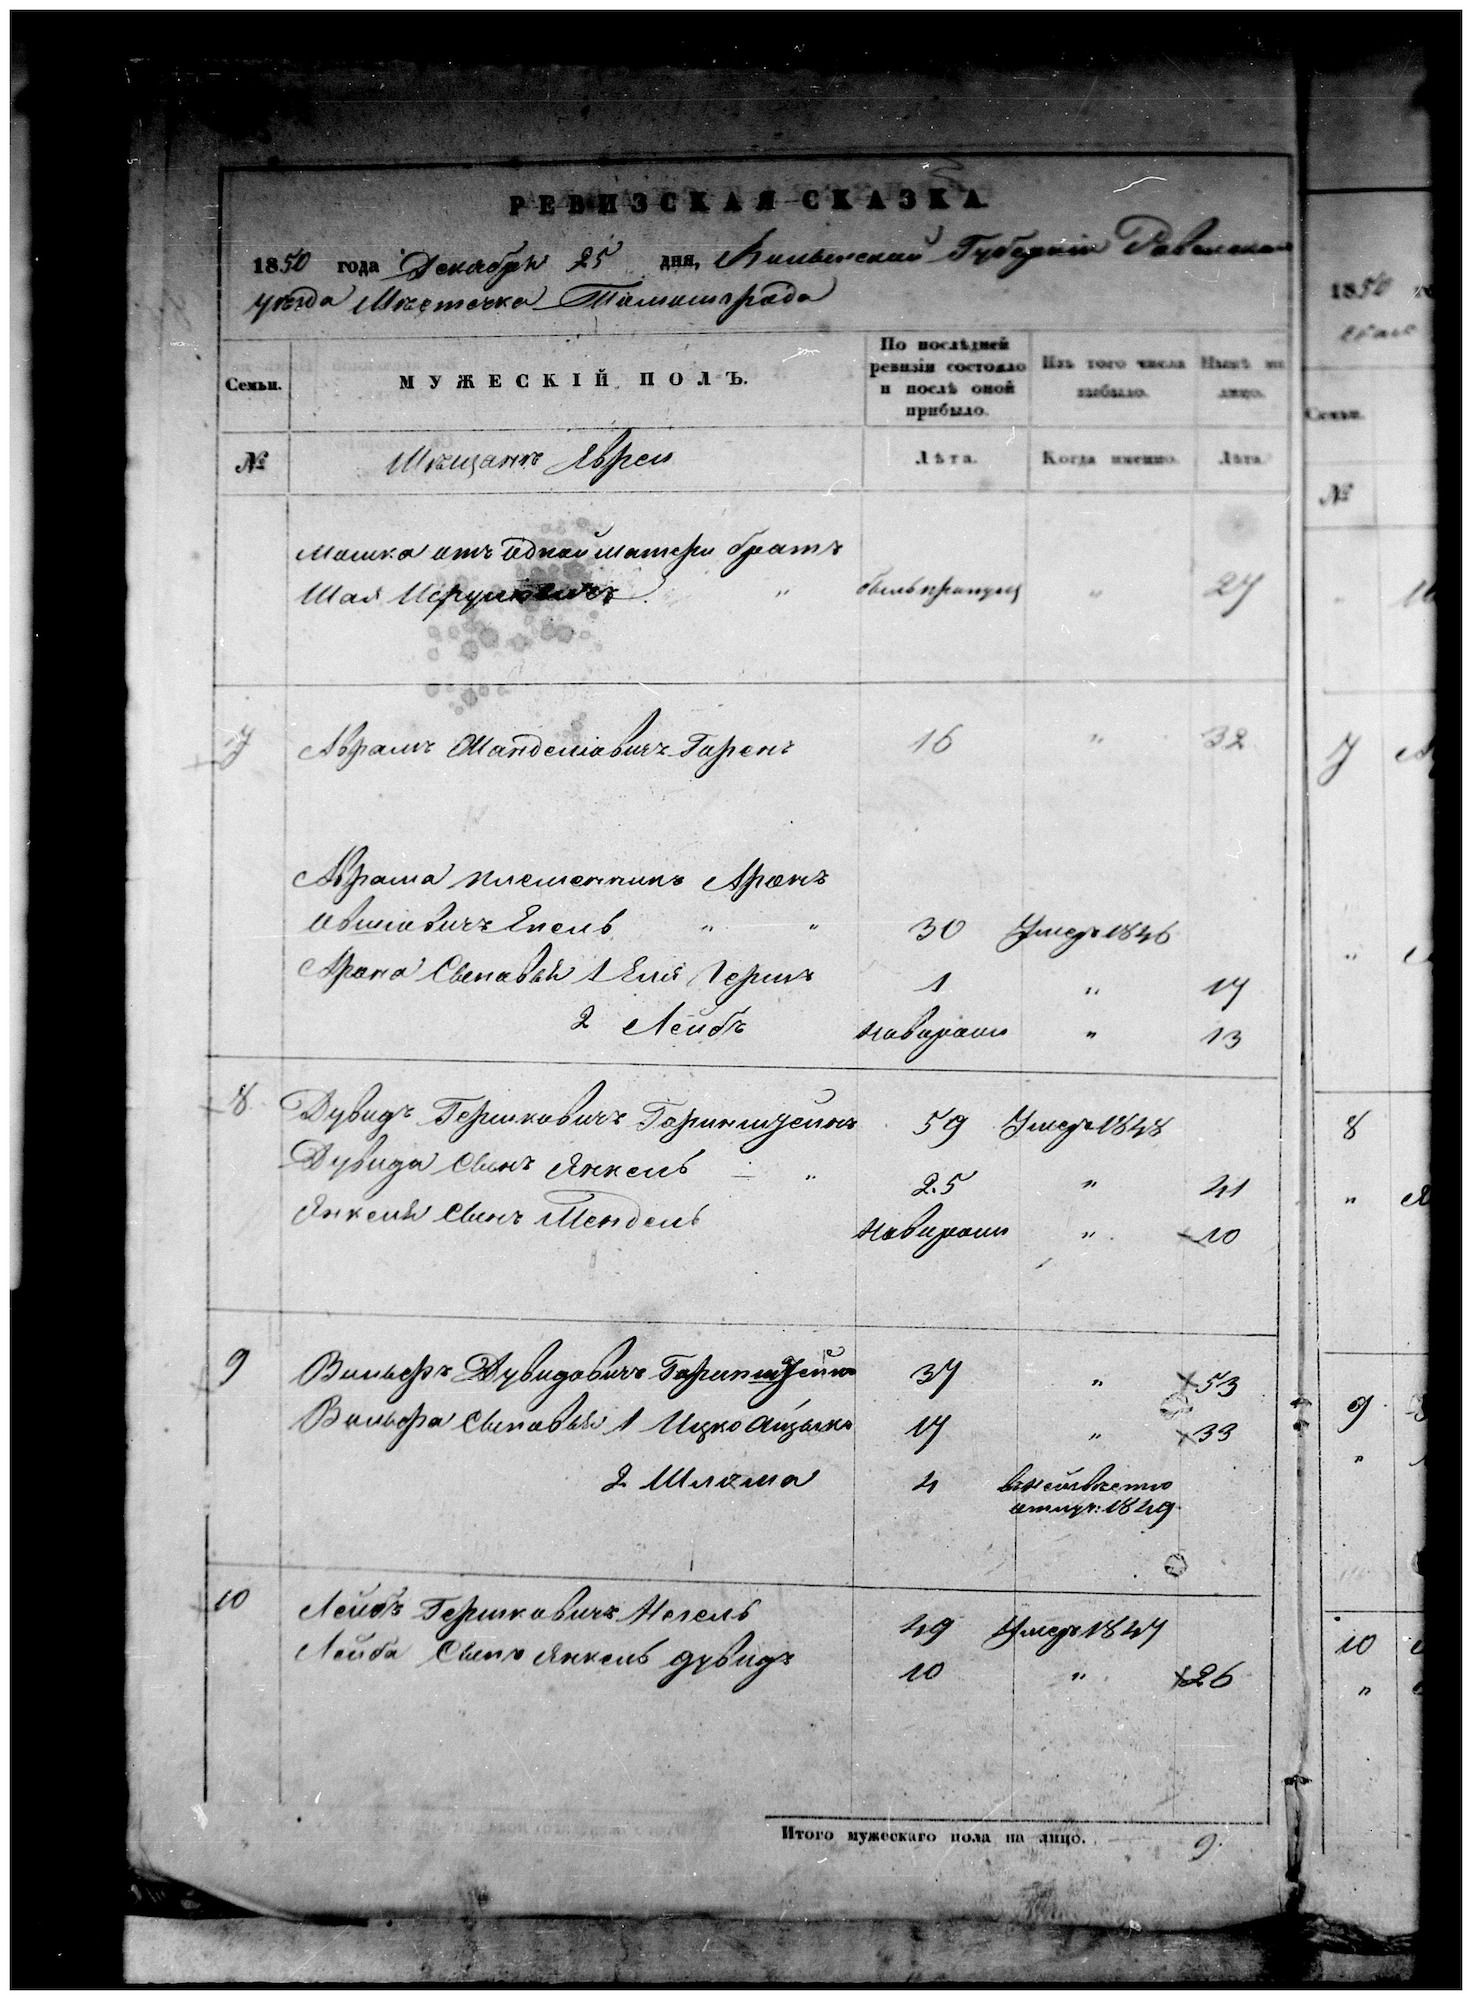 РЕВИЗСКАЯ СКАЗКА
1850 года Декабря 25 дня, Волынской Губернии Ровенскаго
уѣзда Мѣстечка Томашгрода
Семьи. МУЖЕСКІЙ ПОЛЪ. По послѣдней ревизіи состояло и послѣ оной прибыло. Изъ того числа выбыло. Нынѣ на лицо.
№ Мѣщанъ Евреи Лѣта. Когда именно. Лѣта.
Мошка отъ одной матери братъ
Шая " былъ пропущ " 27
7 Абрамъ Манделіовичъ Горенъ 16 " 32
Абрама племенникъ Аронъ
Овшіовичъ Екель " " 30 Умеръ 1846
Арона Сыновья 1 Еля Гершъ 1 " 17
2 Лейбъ Новорож " 13
8 Дувидъ Гершковичъ Горинштейнъ 59 Умеръ 1848
Дувида Сынъ Янкель " 25 " 41
Янкеля Сынъ Мендель Новорож " 10
9 Вольфъ Дувидовичъ Горинштейнъ 37 " 53
Вольфа Сыновья 1 Ицко Айзыкъ 17 " 33
2 Шлёма 4 въ неизвѣстно
отлуч: 1849
10 Лейбъ Гершковичъ Негель 49 Умеръ 1847
Лейба Сынъ Янкель Дувидъ 10 " 26
Итого мужескаго пола на лицо. 9
1850
Семьи.
№
7
"
8
"
9
"
10
"